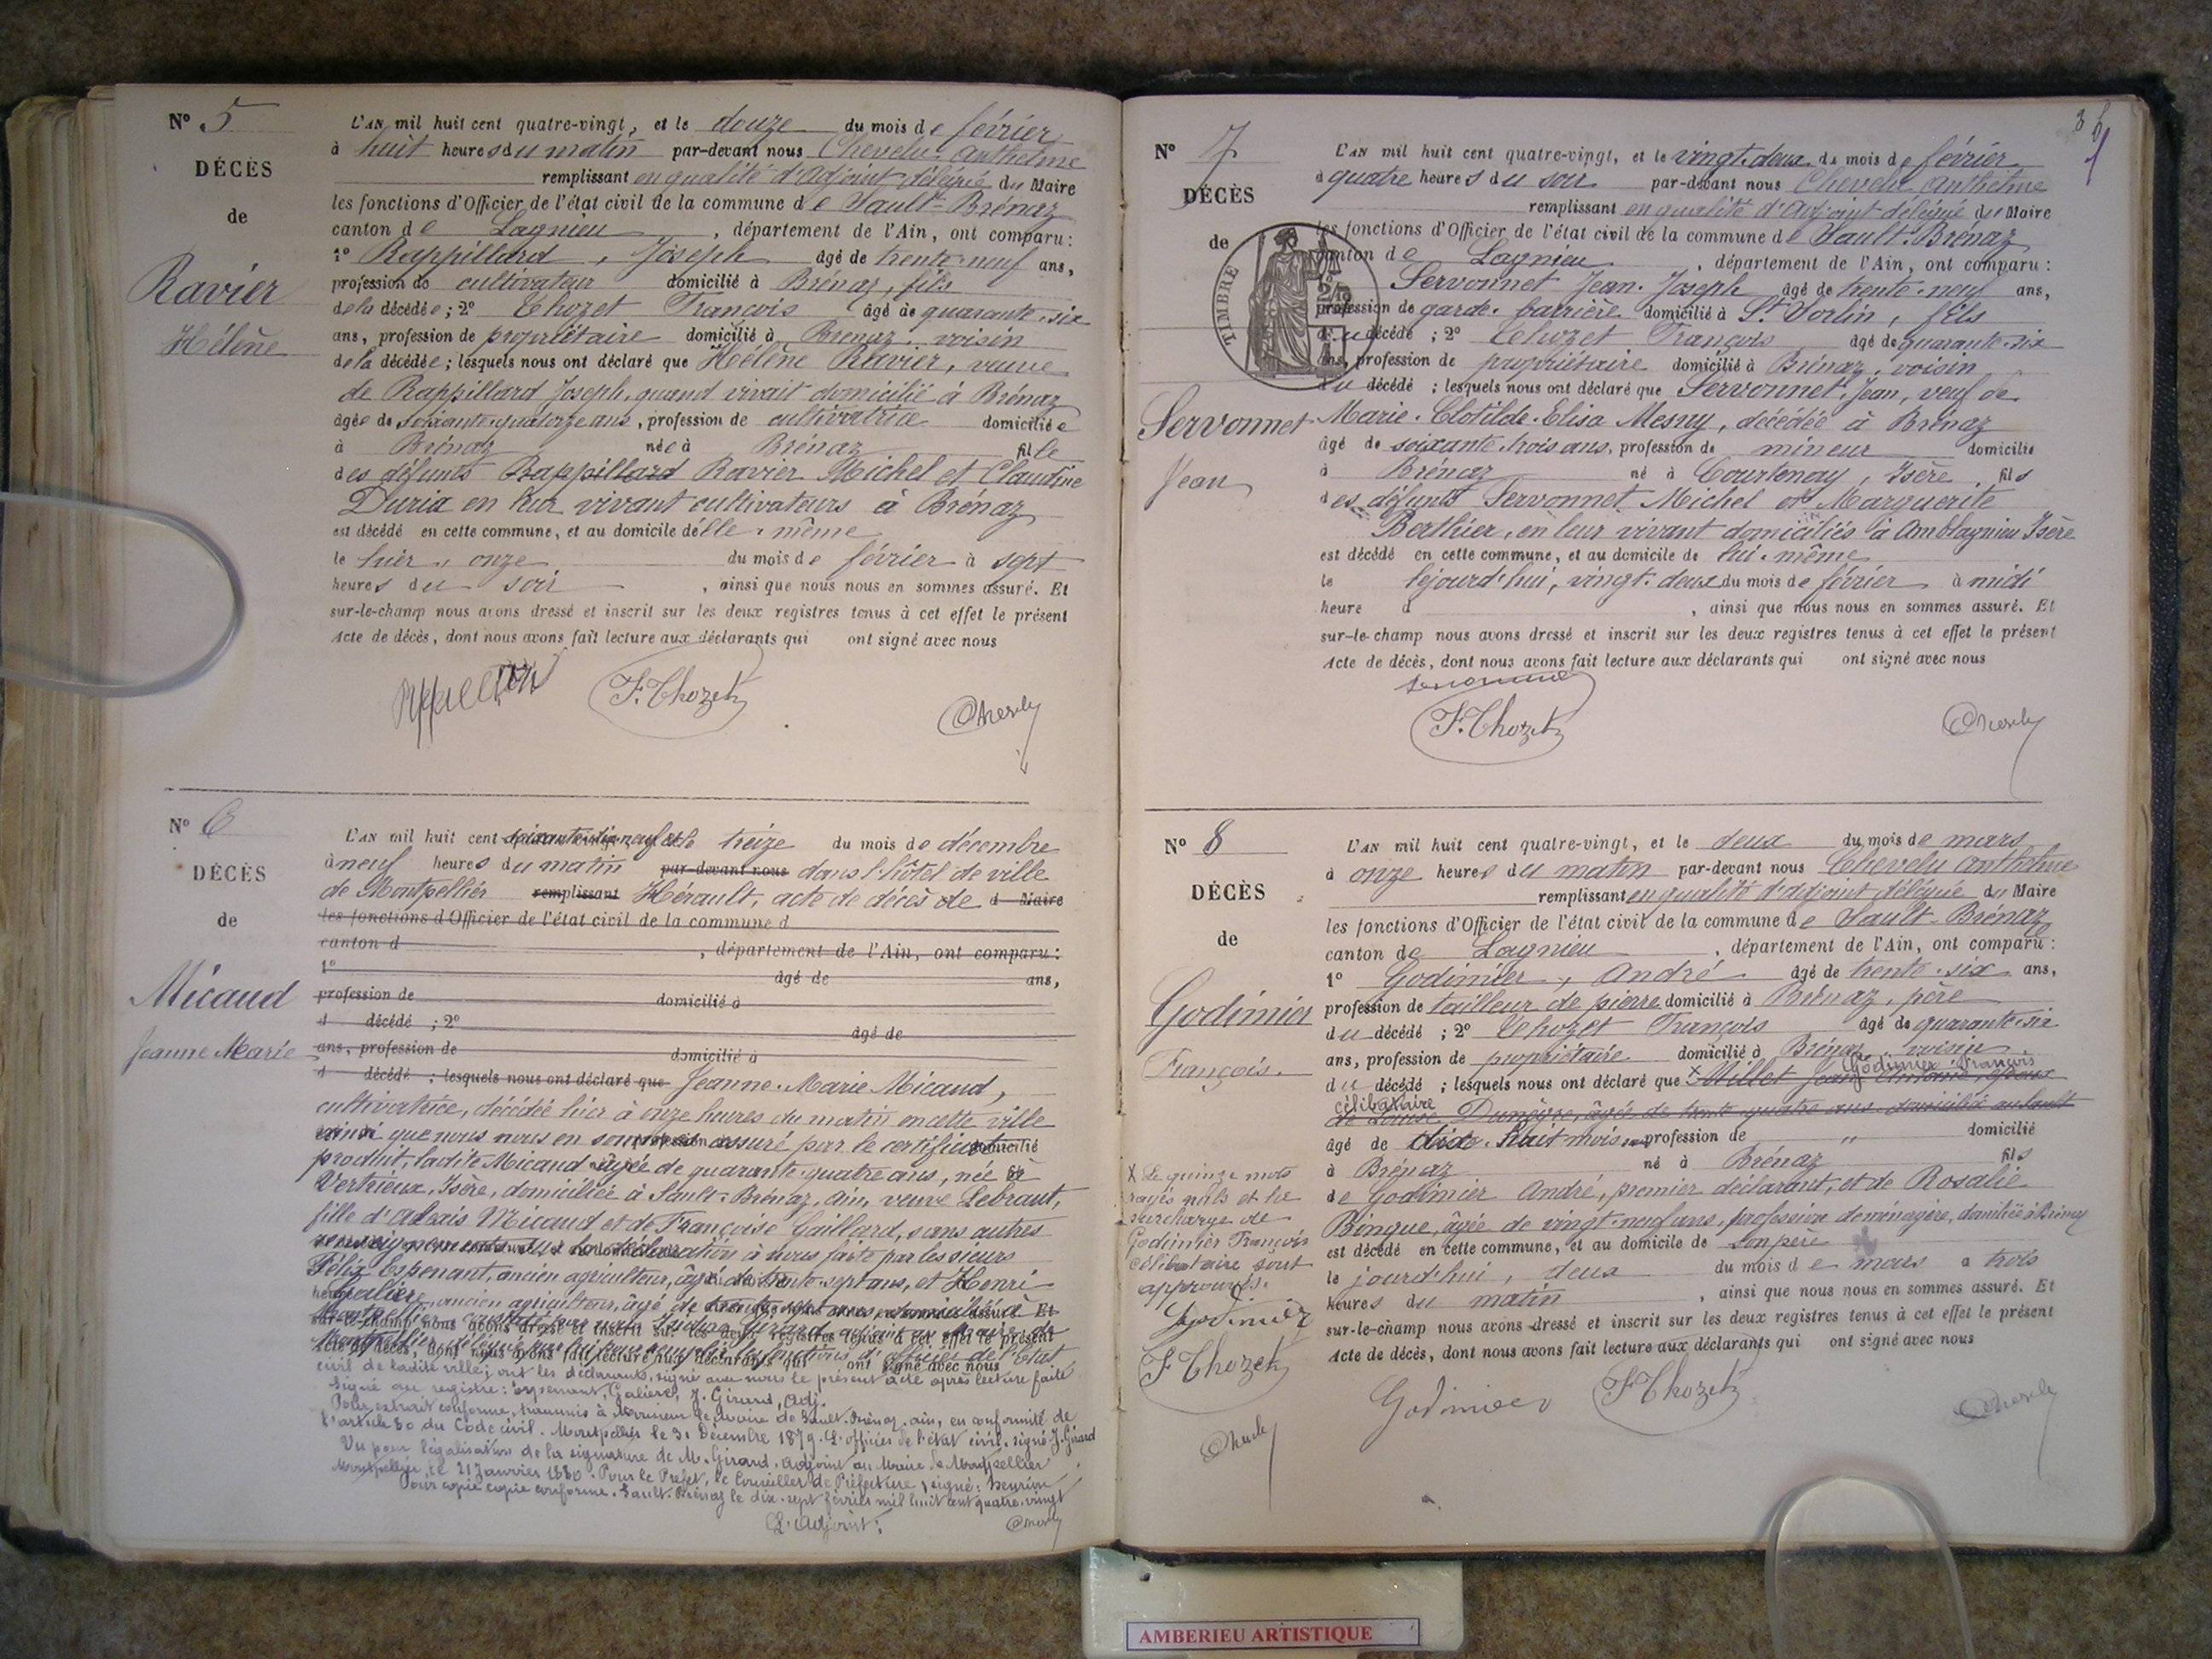 N° 5
DÉCÈS
de
Ravier
Hélène
L'AN mil huit cent quatre-vingt, et le douze du mois de février
à huit heures du matin par-devant nous Chevelu Anthelme
remplissant en qualité d'Adjoint délégué du Maire
les fonctions d'Officier de l'état civil de la commune de Sault-Brénaz
canton de Lagnieu, département de l'Ain, ont comparu :
1° Rappillard, Joseph âgé de trente-neuf ans,
profession de cultivateur domicilié à Brénaz, fils
de la décédée ; 2° Chozet François âgé de quarante-six
ans, profession de propriétaire domicilié à Brenaz, voisin
de la décédée ; lesquels nous ont déclaré que Hélène Ravier, veuve
de Rappillard Joseph, quand vivait domicilié à Brénaz
âgée de soixante-quatorze ans, profession de cultivatrice domiciliée
à Brénaz née à Brénaz fille
des défunts Rappillard Ravier Michel et Claudine
Duria en leur vivant cultivateurs à Brénaz
est décédé en cette commune, et au domicile d'elle-même
le hier, onze du mois de février à sept
heures du soir, ainsi que nous nous en sommes assuré. Et
sur-le-champ nous avons dressé et inscrit sur les deux registres tenus à cet effet le présent
Acte de décès, dont nous avons fait lecture aux déclarants qui ont signé avec nous
F. Chozet
N° 6
DÉCÈS
de
Micaud
Jeanne Marie
L'AN mil huit cent soixante-dix-neuf et le treize du mois de décembre
à neuf heures du matin par-devant nous dans l'hôtel de ville
de Montpellier remplissant Hérault, acte de décès de d Maire
les fonctions d'Officier de l'état civil de la commune d
canton d , département de l'Ain, ont comparu :
1° âgé de ans,
profession de domicilié à
d décédé ; 2° âgé de
ans, profession de domicilié à
d décédé ; lesquels nous ont déclaré que Jeanne-Marie Micaud,
cultivatrice, décédée hier à onze heures du matin en cette ville
ainsi que nous nous en sommes assuré par le certificat
produit, ladite Micaud âgée de quarante-quatre ans, née à
Vertrieux, Isère, domiciliée à Sault-Brénaz, Ain, veuve Lebraut,
fille d'Alexis Micaud et de Françoise Gaillard, sans autres
renseignements, sur la déclaration à nous faite par les sieurs
Félix Espenant, ancien agriculteur, âgé de trente-sept ans, et Henri
Galière, ancien agriculteur, âgé de
civil de ladite ville ; ont les déclarants, signé avec nous le présent acte après lecture faite
Signé au registre : Espenant, Galière, J. Girard, Adj.
Pour extrait conforme, transmis à Monsieur le Maire de Sault-Brénaz, Ain, en conformité de
l'article 80 du Code civil. Montpellier le 31 Décembre 1879. L'officier de l'état civil, signé J. Girard
Vu pour légalisation de la signature de M. Girard, Adjoint au Maire de Montpellier
Montpellier, le 21 Janvier 1880. Pour le Préfet, le Conseiller de Préfecture, signé :
Pour copie copie conforme. Sault-Brénaz le dix-sept février mil huit cent quatre-vingt
L'Adjoint :
N° 7
DÉCÈS
de
Servonnet
Jean
TIMBRE
L'AN mil huit cent quatre-vingt, et le vingt-deux du mois de février
à quatre heures du soir par-devant nous Chevelu Anthelme
remplissant en qualité d'Adjoint délégué du Maire
les fonctions d'Officier de l'état civil de la commune de Sault-Brénaz
canton de Lagnieu, département de l'Ain, ont comparu :
Servonnet Jean-Joseph âgé de trente-neuf ans,
profession de garde-barrière domicilié à St Vorlin, fils
du décédé ; 2° Chozet François âgé de quarante-six
ans, profession de propriétaire domicilié à Brénaz, voisin
du décédé ; lesquels nous ont déclaré que Servonnet Jean, veuf de
Marie-Clotilde-Elisa Mesny, décédée à Brénaz
âgé de soixante-trois ans, profession de mineur domicilié
à Brénaz né à Courtenay, Isère, fils
des défunts Servonnet Michel et Marguerite
Berthier, en leur vivant domiciliés à Amblagnieu Isère
est décédé en cette commune, et au domicile de lui-même
le cejourd'hui, vingt-deux du mois de février à midi
heure d , ainsi que nous nous en sommes assuré. Et
sur-le-champ nous avons dressé et inscrit sur les deux registres tenus à cet effet le présent
Acte de décès, dont nous avons fait lecture aux déclarants qui ont signé avec nous
F. Chozet
N° 8
DÉCÈS
de
Godimier
François.
L'AN mil huit cent quatre-vingt, et le deux du mois de mars
à onze heures du matin par-devant nous Chevelu Anthelme
remplissant en qualité d'adjoint délégué du Maire
les fonctions d'Officier de l'état civil de la commune de Sault-Brénaz
canton de Lagnieu, département de l'Ain, ont comparu :
1° Godimier, André âgé de trente-six ans,
profession de tailleur de pierre domicilié à Brénaz, père
du décédé ; 2° Chozet François âgé de quarante-six
ans, profession de propriétaire domicilié à Brénaz, voisin
Godimier François
du décédé ; lesquels nous ont déclaré que x Millet Jean Antoine, époux
célibataire
de Louise Dumègre, âgée de trente-quatre ans domicilié au Sault
âgé de dix-huit mois profession de " domicilié
à Brénaz né à Brénaz fils
de Godimier André, premier déclarant, et de Rosalie
Bingue, âgée de vingt-neuf ans, profession de ménagère, domiciliée à Brénaz
est décédé en cette commune, et au domicile de son père
le jourd'hui, deux du mois de mars à trois
heures du matin, ainsi que nous nous en sommes assuré. Et
sur-le-champ nous avons dressé et inscrit sur les deux registres tenus à cet effet le présent
Acte de décès, dont nous avons fait lecture aux déclarants qui ont signé avec nous
X Le quinze mots
rayés nuls et la
surcharge de
Godimier François
célibataire sont
approuvés.
Godimier
F Chozet
Godimier
F Chozet
AMBERIEU ARTISTIQUE